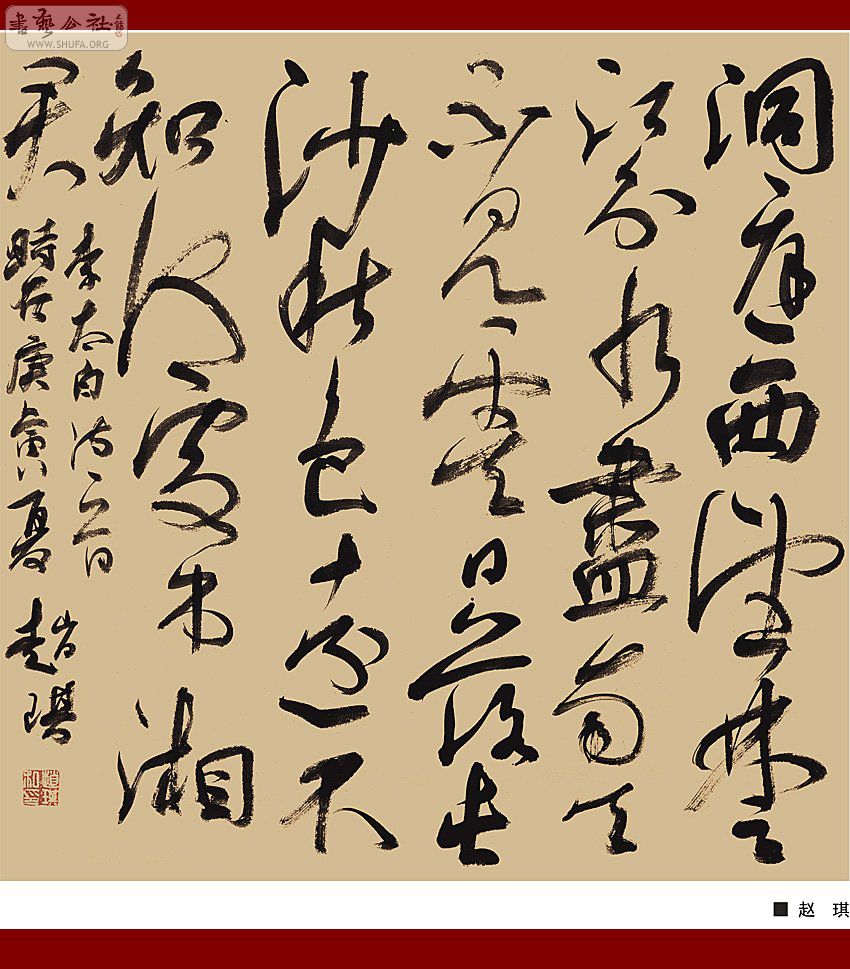 書藝公社
WWW.SHUFA.ORG
洞庭西望楚
江分水盡南天
不見雲日落長
沙秋色遠不
知何處弔湘
君
李太白詩一首
時在庚寅夏 趙琪
赵 琪